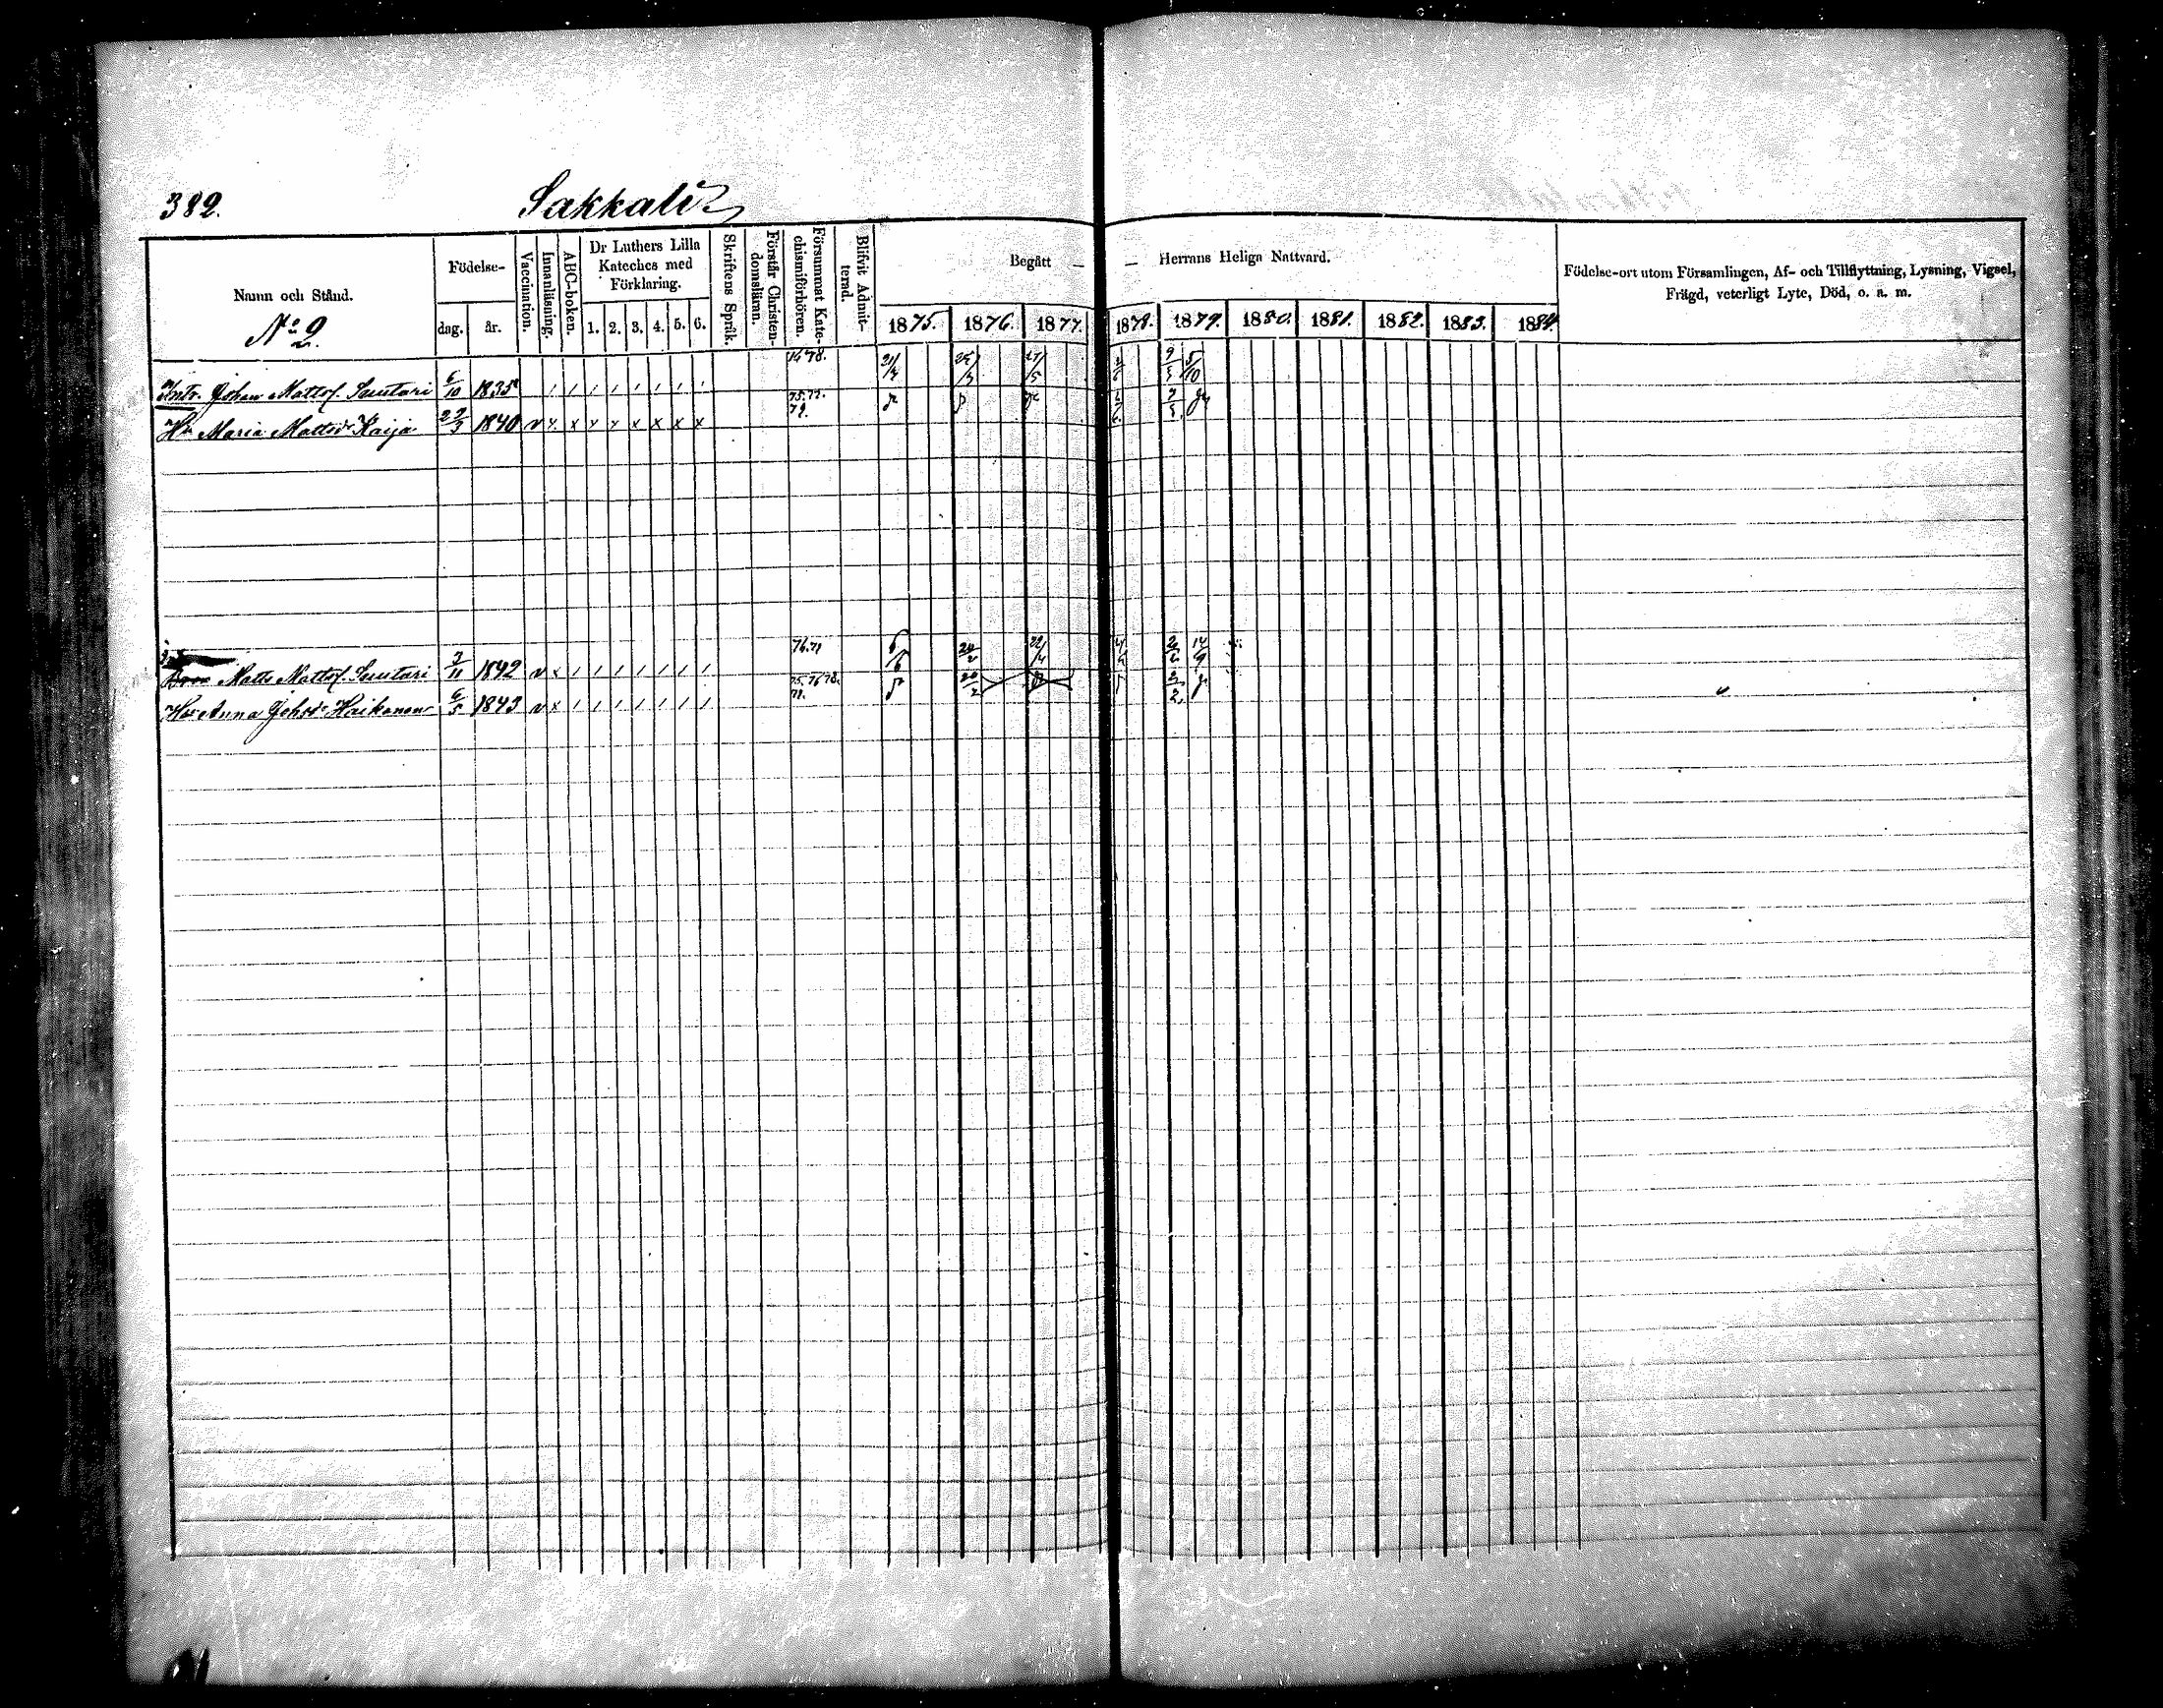 382.
Sakkali
Namn och Stånd.
No 2.
Födelse-
dag. år.
Vaccination.
Innanläsning.
ABC-boken.
Dr Luthers Lilla
Kateches med
Förklaring.
1. 2. 3. 4. 5. 6.
Skriftens Språk.
Förstår Christen-
domsläran.
Försummat Kate-
chismiförhören.
Blifvit Admit-
terad.
Begått — — Herrans Heliga Nattvard.
1875. 1876. 1877. 1878. 1879. 1880. 1881. 1882. 1883. 1884.
Födelse-ort utom Församlingen, Af- och Tillflyttning, Lysning, Vigsel,
Frägd, veterligt Lyte, Död, o. a. m.
Johan Mattsf. Suutari 6/10 1835
Hu Maria Mattsdr Kaija 22/3 1840 v x x x x x x x x
Matts Mattsf. Suutari 7/11 1842 v x
Hu Anna Johsdr Haikonen 6/5 1843 v x